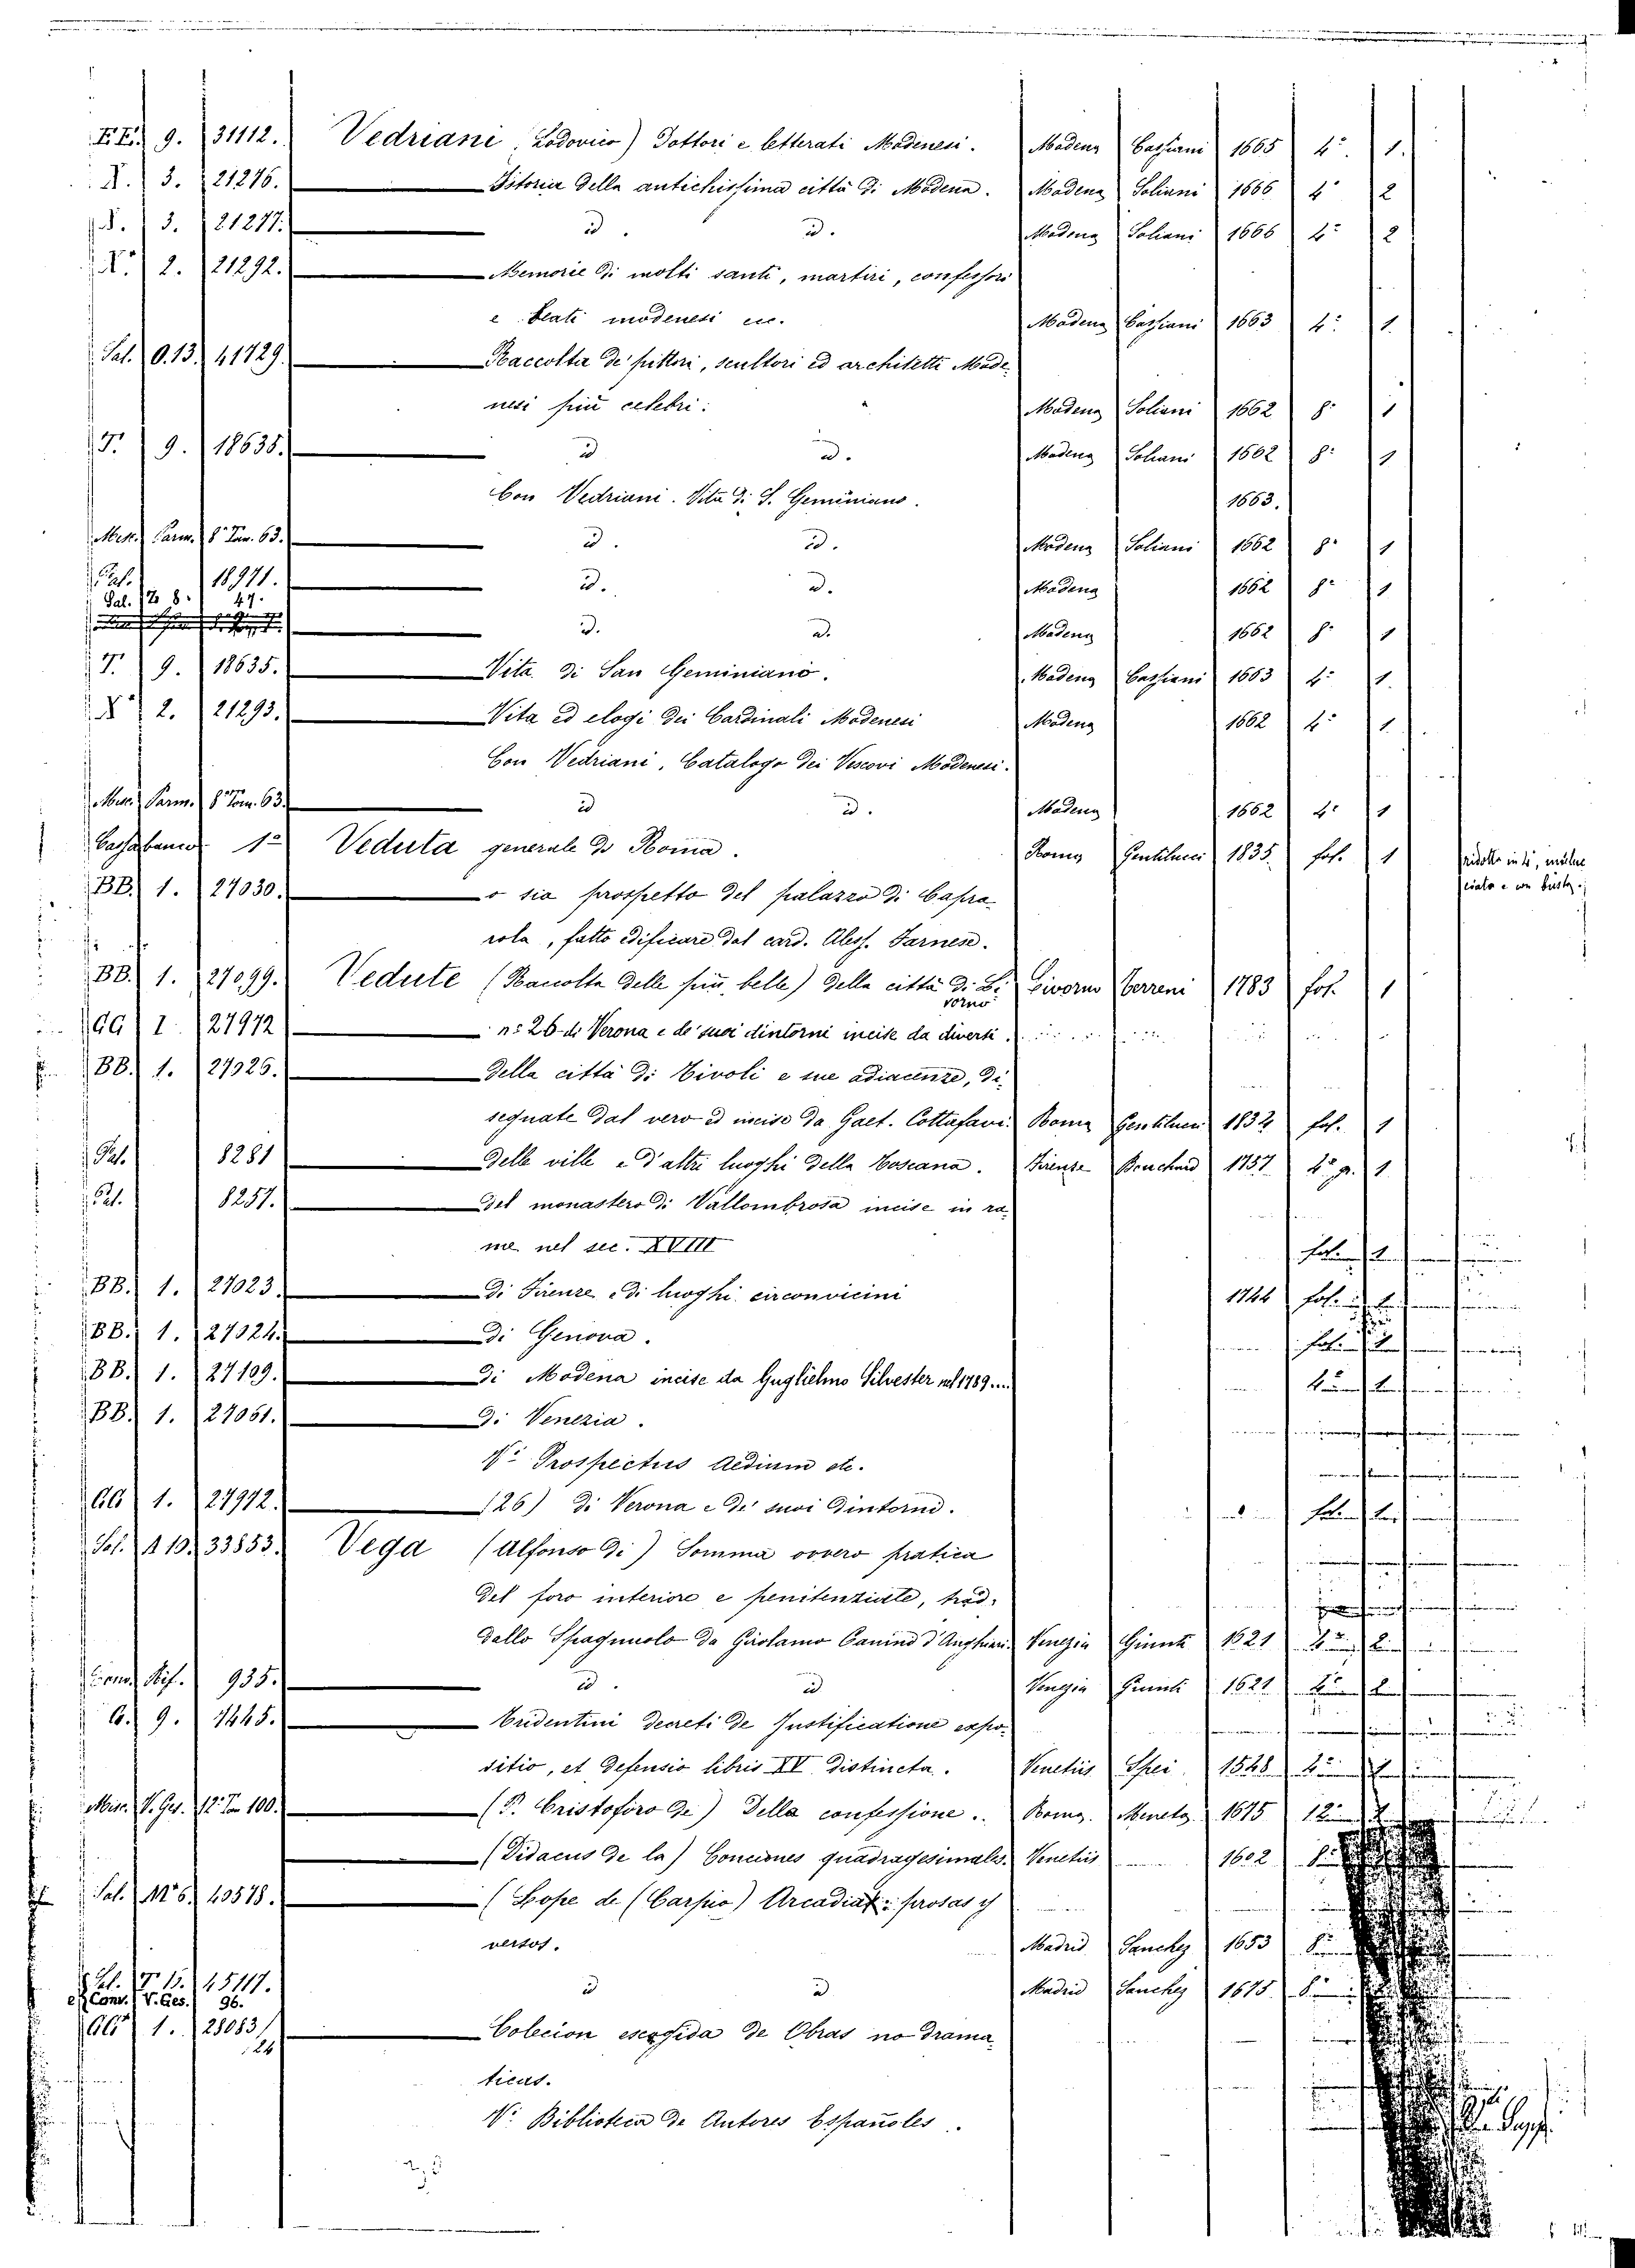 FF. 9. 31112. Vedriani, Lodovico) Dottori e letterati Modenesi. Modena Cassiani 1665 4° 1.
X. 3. 21276. Istoria della antichissima città di Modena. Modena Soliani 1666 4° 2
3. 21277. id. id. Modena Soliani 1666 4° 2
X. 2. 21292. Memorie di molti santi, martiri, confessori
e beati modenesi ec. Modena Cassiani 1663 4° 1.
Sal. O.13. 41729. Raccolta de' pittori, scultori ed architetti Mode-
nesi più celebri: Modena Soliani 1662 8° 1
T. 9. 18635. id id. Modena Soliani 1662 8° 1
Con Vedriani. Vita di S. Geminiano. 1663.
Misc. Parm. 8° Tom. 63. id. id. Modena Soliani 1662 8° 1
Pal. 18971. id. id. Modena 1662 8° 1
Sal. 8. 47. id. id. Modena 1662 8° 1
T. 9. 18635. Vita di San Geminiano. Modena Cassiani 1663 4° 1.
X 2. 21293. Vita ed elogi dei Cardinali Modenesi Modena 1662 4° 1.
Con Vedriani, Catalogo dei Vescovi Modenesi.
Misc. Parm. 8° Tom. 63. id id. Modena 1662 4° 1
1° Veduta generale di Roma. Roma Gentilucci 1835 fol. 1 ridotte in 4°,
BB. 1. 27030. o sia prospetto del palazzo di Capra- e con busta.
rola, fatto edificare dal card. Aless. Farnese.
BB. 1. 27099. Vedute (Raccolta delle più belle) della città di Li- Livorno Terreni 1783 fol. 1
vorno
GG I 27972 n: 26 di Verona e de' suoi dintorni incise da diversi.
BB. 1. 27026. della città di Tivoli e sue adiacenze, di-
segnate dal vero ed incise da Gaet. Cottafavi. Roma Gentilucci fol. 1
Pal. 8281 delle ville e d'altri luoghi della Toscana. Firenze Bouchard 1757 4° gr. 1.
Pal. 8257. del monastero di Vallombrosa incise in ra-
me nel sec. XVIII fol. 1
BB. 1. 27023. di Firenze e di luoghi circonvicini 1744 fol.
BB. 1. 27024. di Genova. fol.
BB. 1. 27109. di Modena incise da Guglielmo Silvester nel 1789....
BB. 1. 27051. di Venezia.
V: Prospectus Aedium etc.
GG 1. 27972. (26) di Verona e de' suoi dintorni. fol.
Sal. A 10. 33853. Vega (Alfonso di) Somma ovvero pratica
del foro interiore e penitenziale, trad.
dallo Spagnuolo da Girolamo Canino d'Anghiari. Venezia Giunti 1621
Rif. 935. id. id Venezia Giunti 1621
9. 1445. Tridentini decreti de Justificatione expo-
sitio, et defensio libris XV distincta. Venetiis Spei 1548
Misc. V. Ges. 12° Tom 100. (P. Cristoforo de) Della confessione.. Roma. 1675 12
(Didacus de la) Conciones quadragesimales. Venetiis 1602 8
Sal. 40578. (Lope de (Carpio) Arcadia: prosas y
versos. Madrid Sanchez 1653 8°
Pal. 15. 15117. id id Madrid Sanchez 1675 8°
Conv. V. Ges. 96.
1. 28083 Colecion escogida de Obras no drama-
24
ticas.
V: Biblioteca de Autores Españoles.